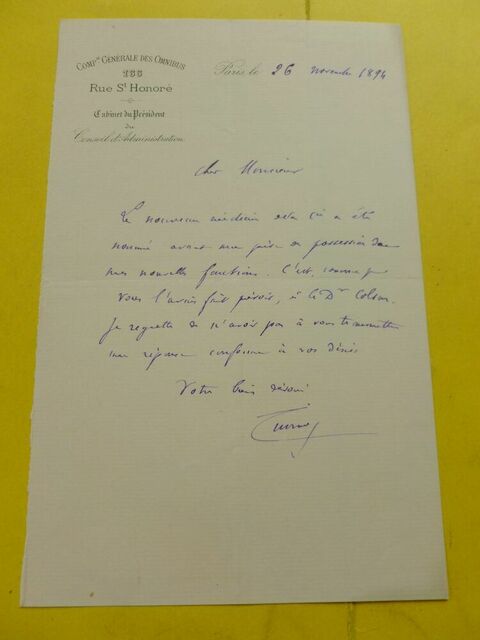 COMPie GÉNÉRALE DES OMNIBUS
155
Rue St Honoré
Cabinet du Président
du
Conseil d'Administration
Paris, le 26 novembre 1894
Cher Monsieur
Le nouveau médecin de la Cie a été
nommé avant ma prise de possession de
mes nouvelles fonctions. C'est, comme je
vous l'avais fait prévoir, le Dr
Je regrette de n'avoir pas à vous transmettre
une réponse conforme à vos désirs
Votre bien dévoué